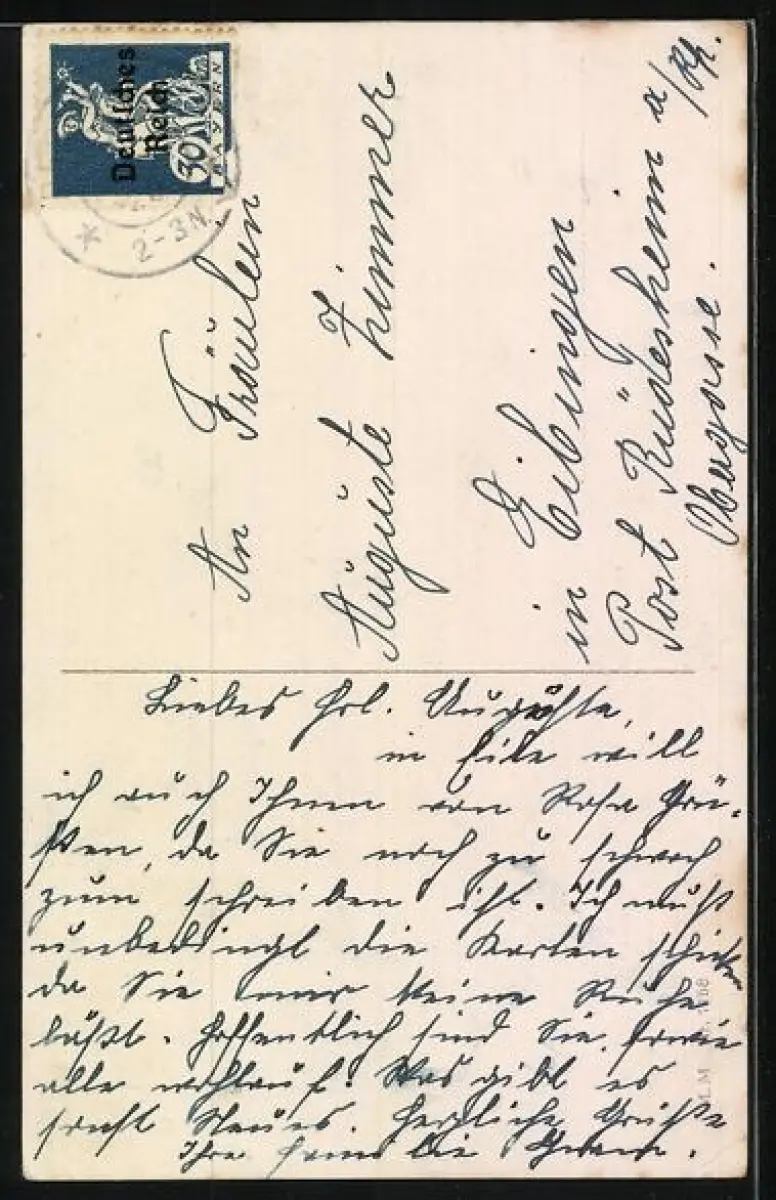 Deutsches
Reich
30
BAYERN
2-3N.
An Fräulein
Auguste Zimmer
in Eibingen
Post Rüdesheim a/Rh.
Obergasse.
Liebes Frl. Auguste,
in Eile will
ich auch Ihnen von Rosa Grü-
ßen, da Sie noch zu schwach
zum schreiben ist. Ich muß
unbedingt die Karten schicken
da Sie mir keine Ruhe
läßt. Hoffentlich sind Sie, sowie
alle wohlauf. Was gibt es
sonst Neues. Herzliche Grüße
Ihre